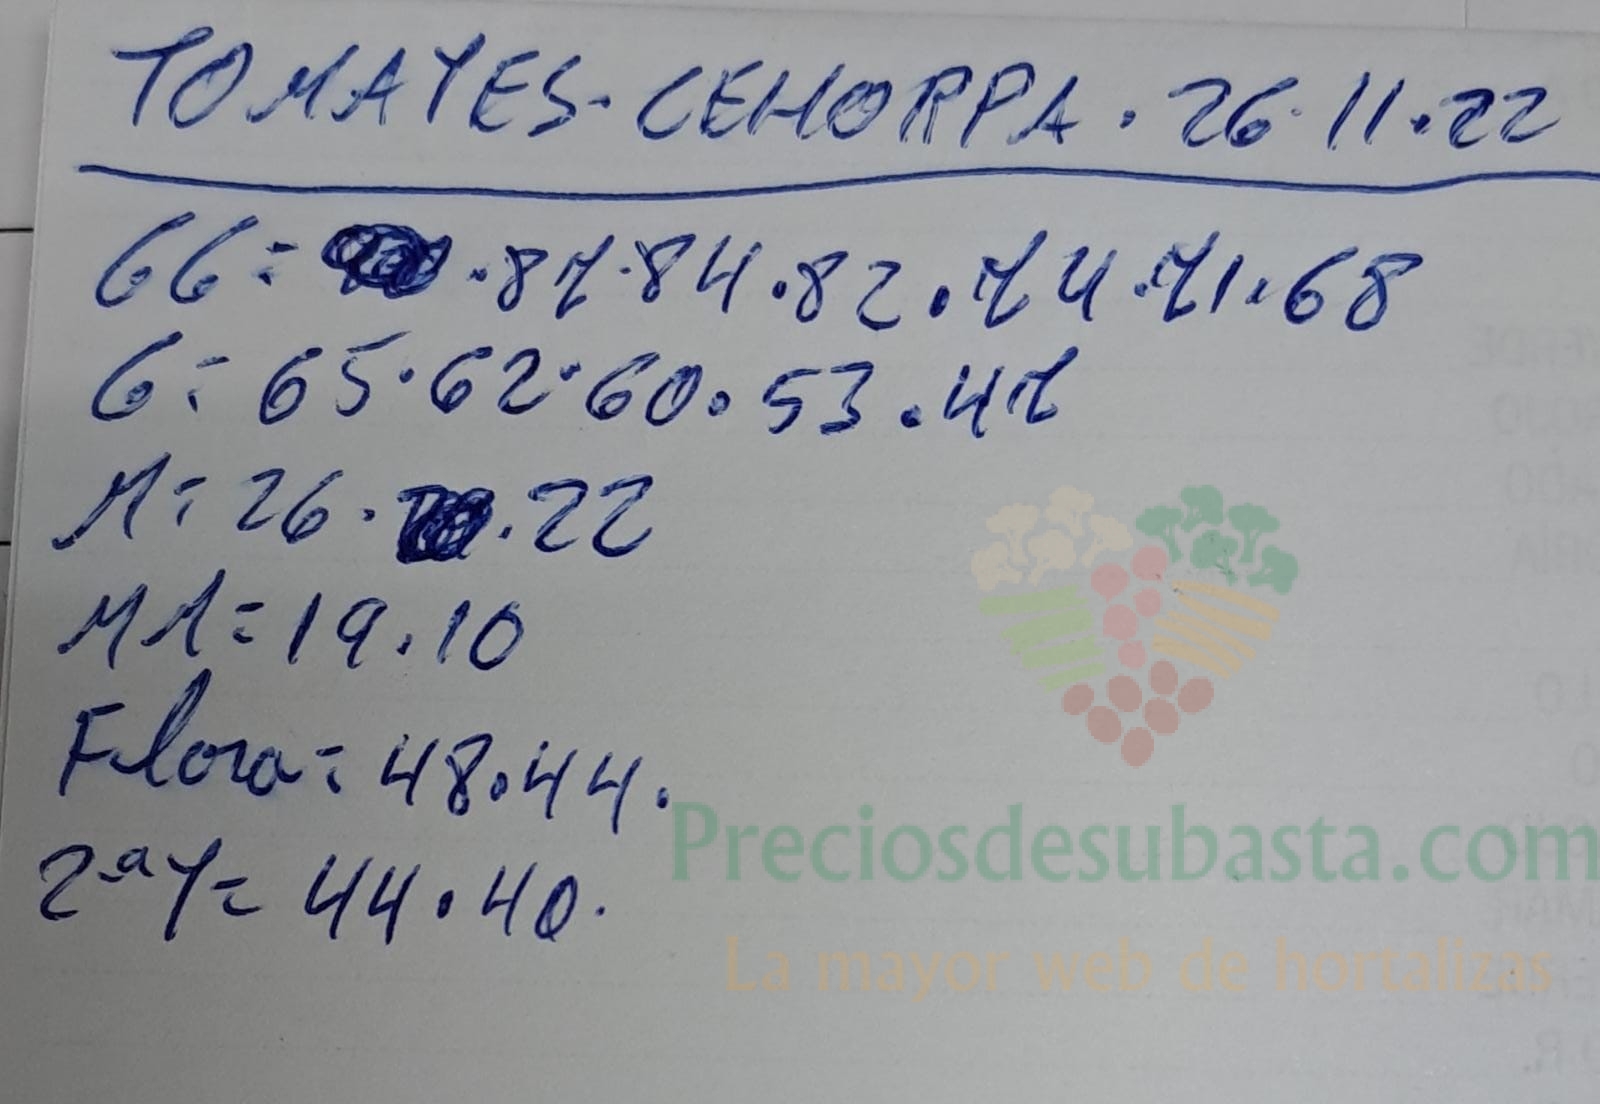 TOMATES-CEHORPA. 26.11.22
GG= .87.84.82.74.71.68
G= 65.62.60.53.47
M= 26. .22
MM=19.10
Flora=48.44.
2ªY= 44.40.
Preciosdesubasta.com
La mayor web de hortalizas